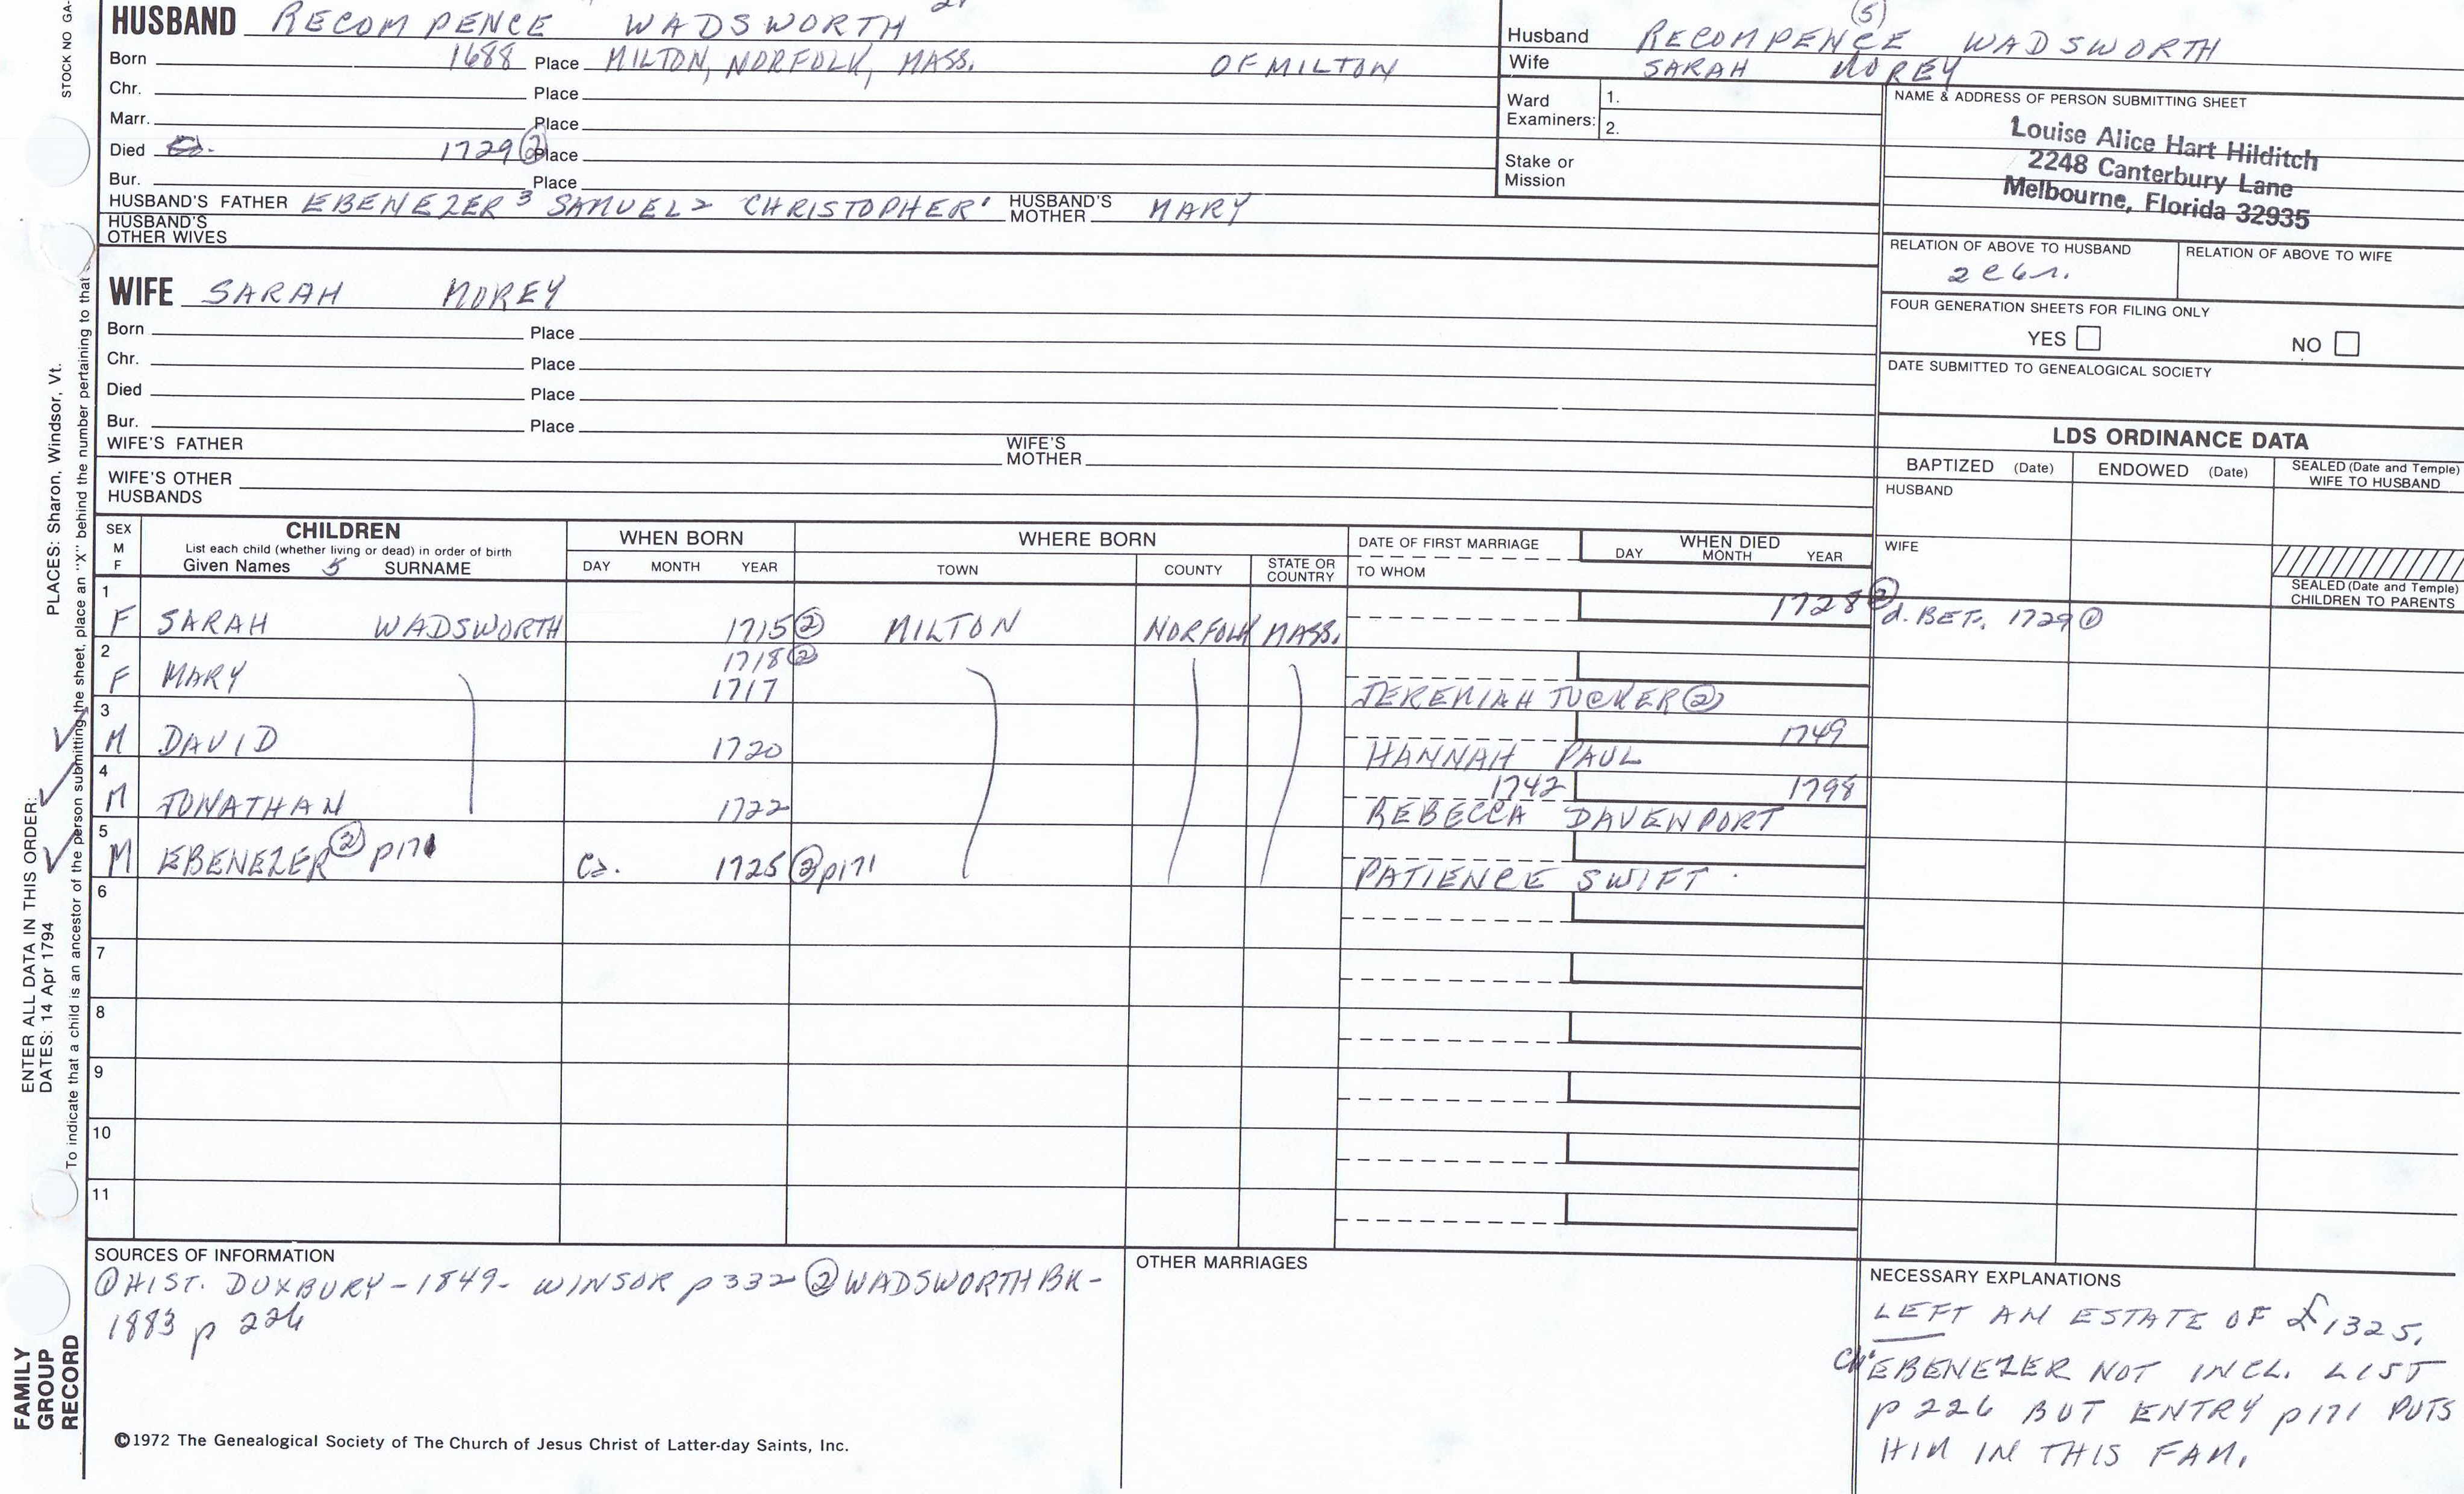 STOCK NO GA-
HUSBAND RECOMPENCE WADSWORTH
Born 1688 Place MILTON, NORFOLK, MASS. OF MILTON
Chr. Place
Marr. Place
Died 1729 ② Place
Bur. Place
HUSBAND'S FATHER EBENEZER 3 SAMUEL 2 CHRISTOPHER ' HUSBAND'S MOTHER MARY
HUSBAND'S OTHER WIVES
(5)
Husband RECOMPENCE WADSWORTH
Wife SARAH MOREY
Ward Examiners: 1.
2.
Stake or Mission
NAME & ADDRESS OF PERSON SUBMITTING SHEET
Louise Alice Hart Hilditch
2248 Canterbury Lane
Melbourne, Florida 32935
RELATION OF ABOVE TO HUSBAND RELATION OF ABOVE TO WIFE
FOUR GENERATION SHEETS FOR FILING ONLY
YES NO
DATE SUBMITTED TO GENEALOGICAL SOCIETY
WIFE SARAH MOREY
Born Place
Chr. Place
Died Place
Bur. Place
WIFE'S FATHER WIFE'S MOTHER
WIFE'S OTHER HUSBANDS
LDS ORDINANCE DATA
BAPTIZED (Date) ENDOWED (Date) SEALED (Date and Temple) WIFE TO HUSBAND
HUSBAND
WIFE
SEALED (Date and Temple) CHILDREN TO PARENTS
SEX M F CHILDREN WHEN BORN WHERE BORN DATE OF FIRST MARRIAGE WHEN DIED
List each child (whether living or dead) in order of birth
Given Names 5 SURNAME DAY MONTH YEAR TOWN COUNTY STATE OR COUNTRY TO WHOM DAY MONTH YEAR
1 F SARAH WADSWORTH 1715 ② MILTON NORFOLK MASS. 1728 ② d. BET. 1729 ①
2 F MARY 1718 ② 1717 JEREMIAH TUCKER ②
3 M DAVID 1720 HANNAH PAUL 1749
4 M JONATHAN 1722 1742 REBECCA DAVENPORT 1798
5 M EBENEZER ② p171 Ca. 1725 ② p171 PATIENCE SWIFT
6
7
8
9
10
11
SOURCES OF INFORMATION
① HIST. DUXBURY - 1849 - WINSOR p 332 ② WADSWORTH BK -
1883 p 226
OTHER MARRIAGES
NECESSARY EXPLANATIONS
LEFT AN ESTATE OF £1325.
CH. EBENEZER NOT INCL. LIST
p 226 BUT ENTRY p171 PUTS
HIM IN THIS FAM.
©1972 The Genealogical Society of The Church of Jesus Christ of Latter-day Saints, Inc.
FAMILY GROUP RECORD
ENTER ALL DATA IN THIS ORDER:
DATES: 14 Apr 1794 PLACES: Sharon, Windsor, Vt.
To indicate that a child is an ancestor of the person submitting the sheet, place an "X" behind the number pertaining to that